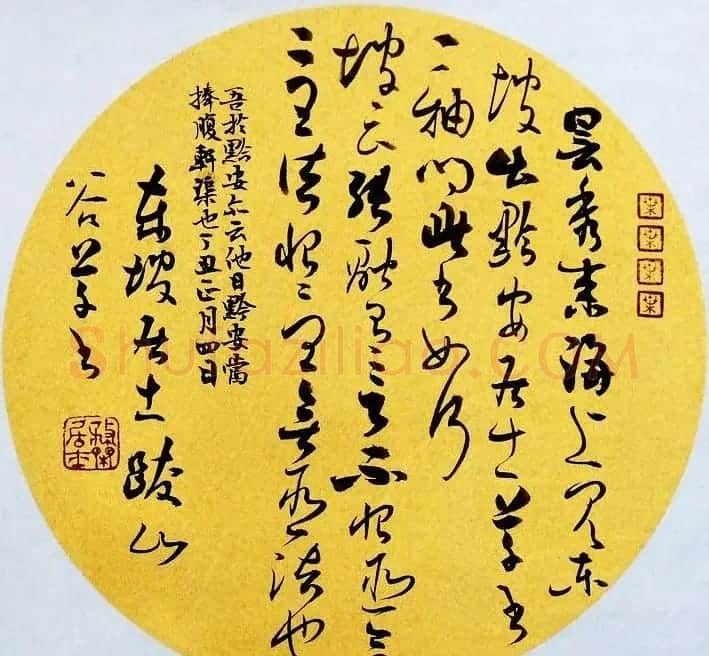 曇秀來海上見東
坡出黔安居士草書
一軸問此書如何
坡云張融有言不恨臣無
二王法恨二王無臣法也
吾於黔安亦云他日黔安當
捧腹軒渠也丁丑正月四日
東坡居士跋山
谷草書
Shufaziliao.COM